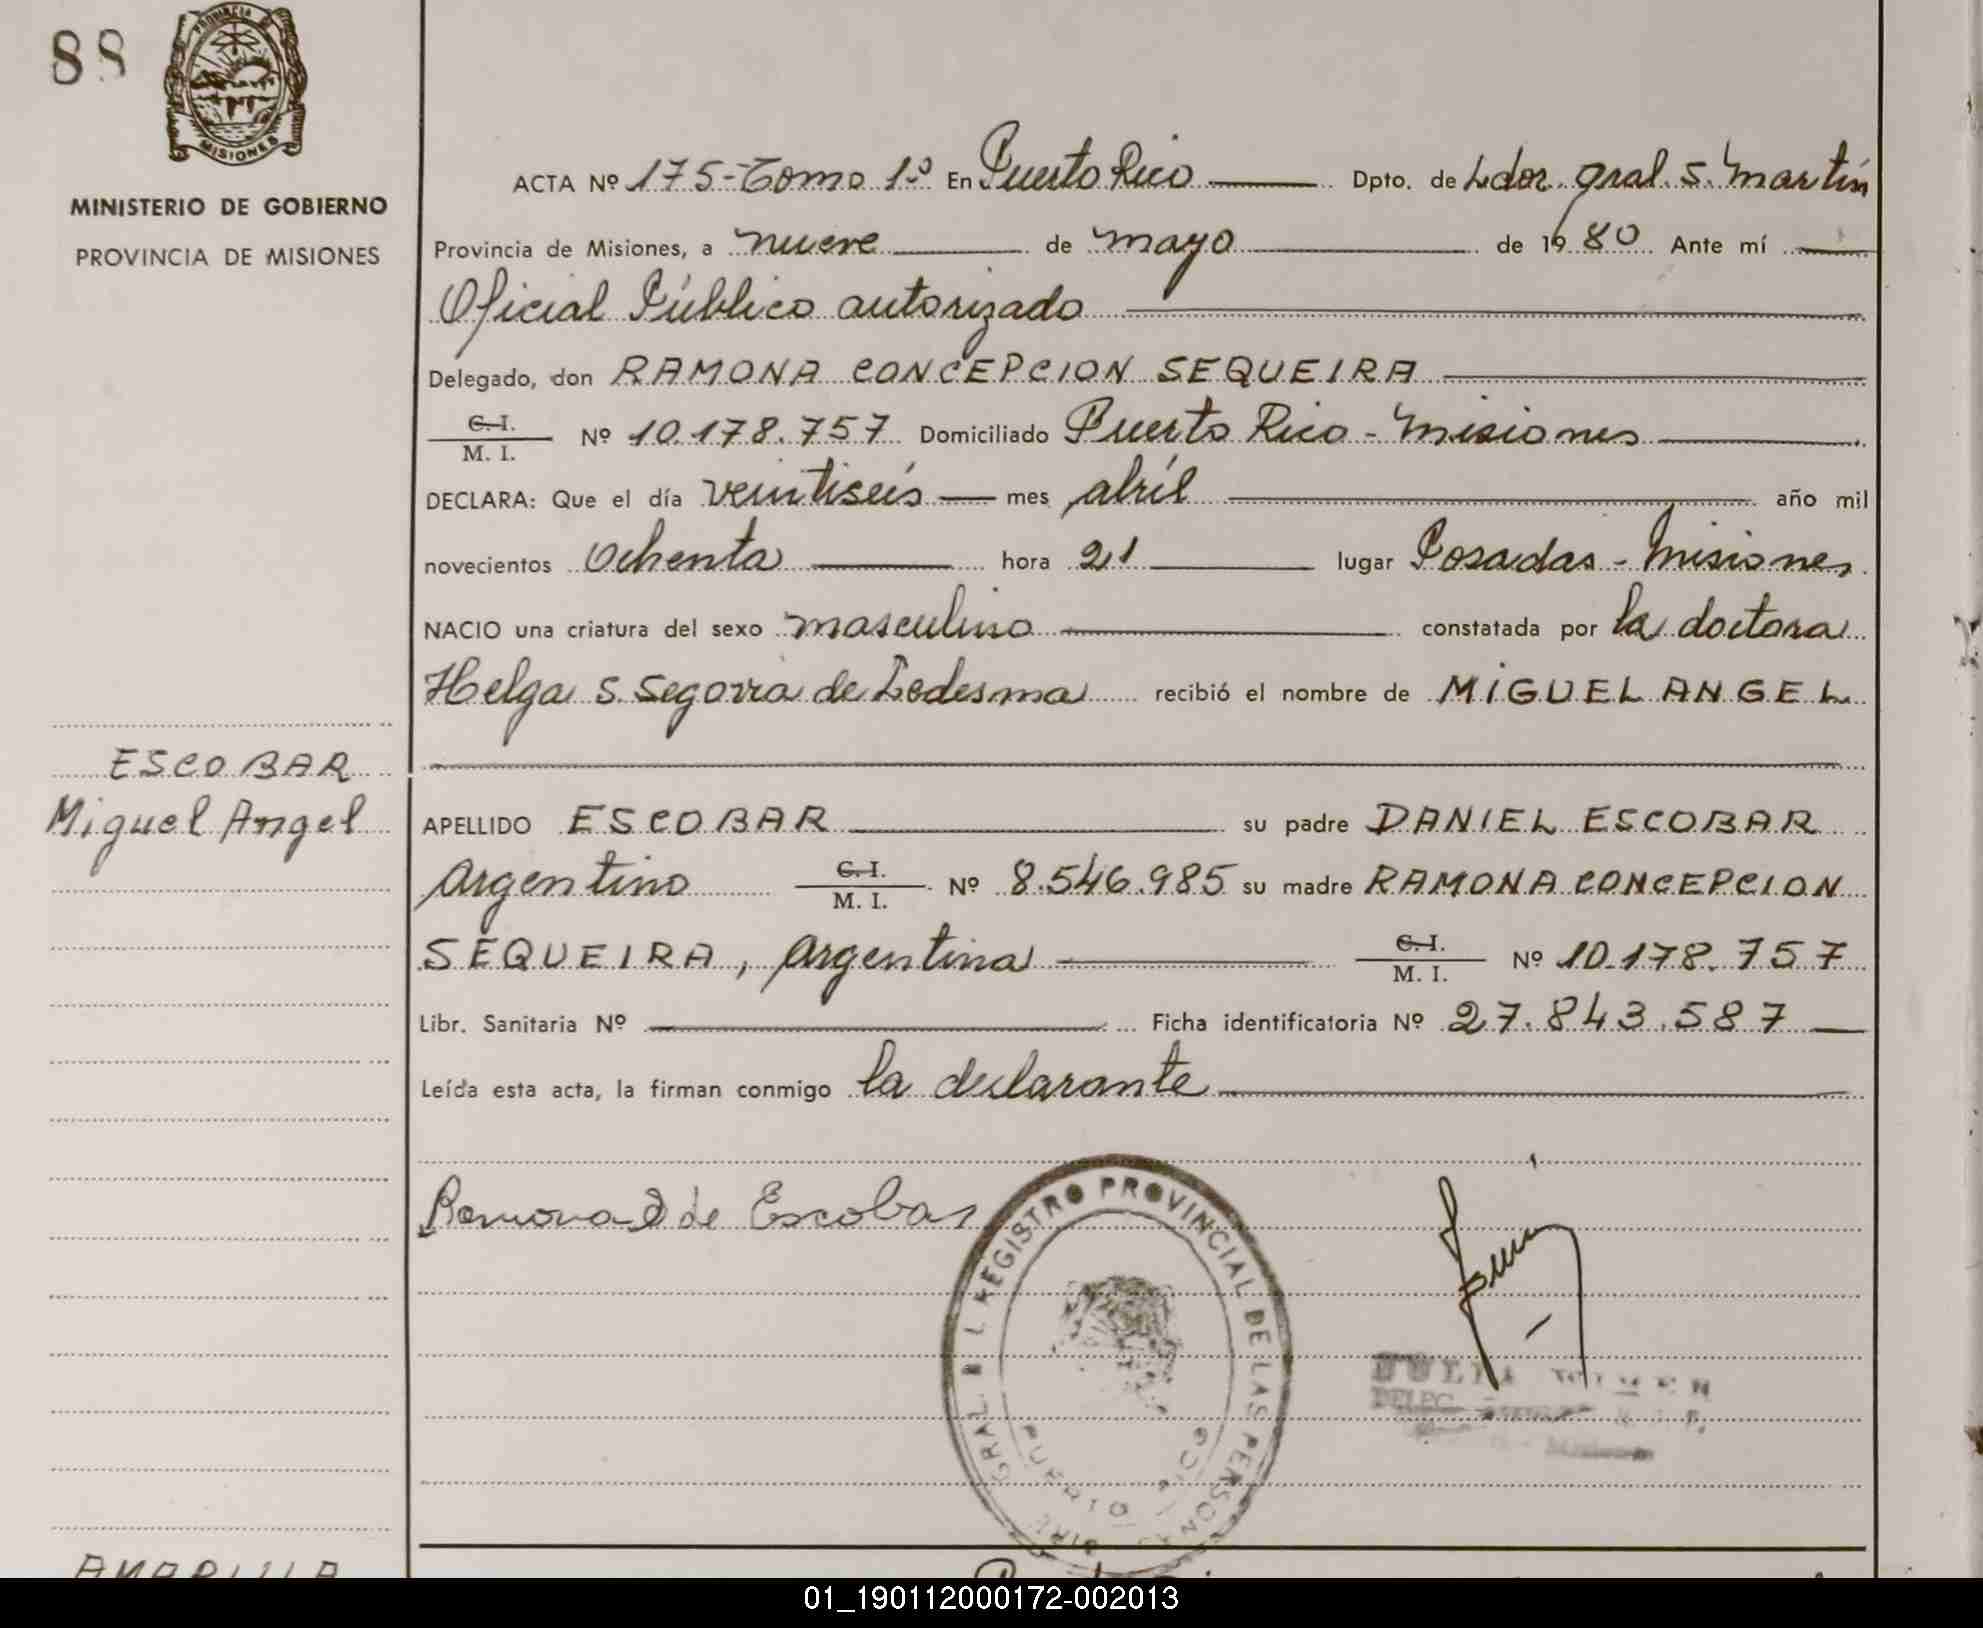 88
PROVINCIA DE
MISIONES
MINISTERIO DE GOBIERNO
PROVINCIA DE MISIONES
ACTA Nº 175-Tomo 1º En Puerto Rico Dpto. de Ldor. Gral. S. Martín
Provincia de Misiones, a nueve de mayo de 1980 Ante mí
Oficial Público autorizado
Delegado, don RAMONA CONCEPCION SEQUEIRA
C.I.
M. I. Nº 10.178.757 Domiciliado Puerto Rico - Misiones
DECLARA: Que el día veintiséis mes abríl año mil
novecientos ochenta hora 21 lugar Posadas - Misiones
NACIO una criatura del sexo masculino constatada por la doctora
Helga S. Segovia de Ledesma recibió el nombre de MIGUEL ANGEL
ESCOBAR
Miguel Angel
APELLIDO ESCOBAR su padre DANIEL ESCOBAR
Argentino C.I.
M. I. Nº 8.546.985 su madre RAMONA CONCEPCION
SEQUEIRA, Argentina C.I.
M. I. Nº 10.178.757
Libr. Sanitaria Nº Ficha identificatoria Nº 27.843.587
Leída esta acta, la firman conmigo la declarante
Ramona S de Escobar
GRAL. REGISTRO PROVINCIAL DE LAS PERSONAS
PUERTO RICO
DELEG.
Misiones
01_190112000172-002013